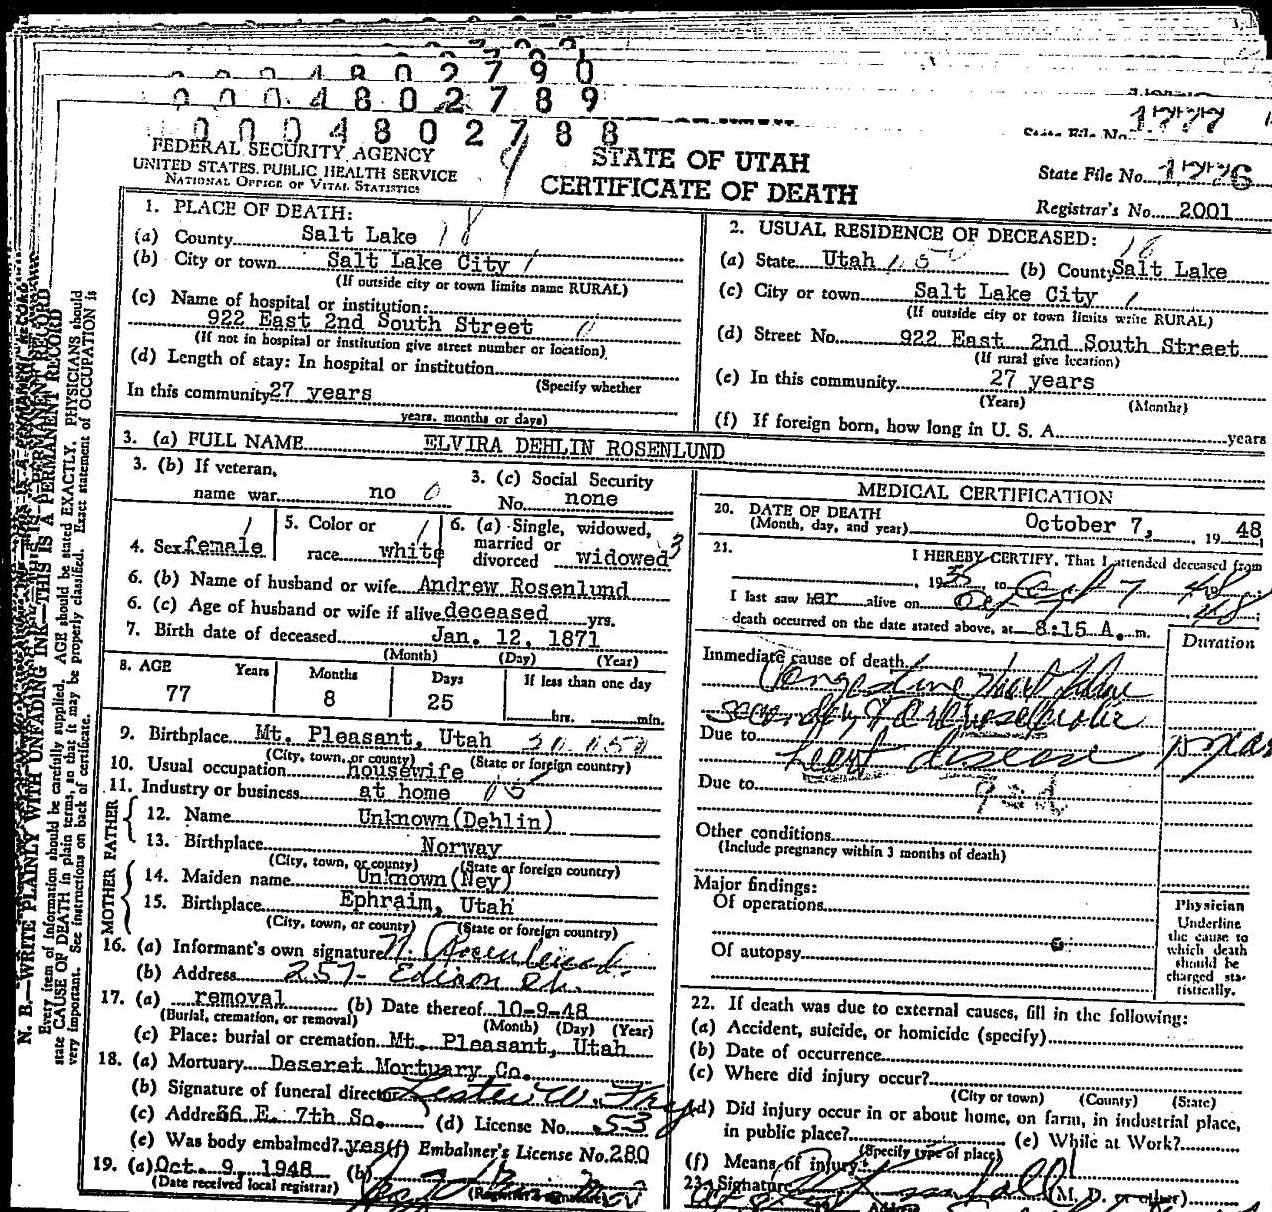 0 0 0 4 8 0 2 7 9 0
0 0 0 4 8 0 2 7 8 9
0 0 0 4 8 0 2 7 8 8
State File No. 1777
FEDERAL SECURITY AGENCY
UNITED STATES PUBLIC HEALTH SERVICE
NATIONAL OFFICE OF VITAL STATISTICS
STATE OF UTAH
CERTIFICATE OF DEATH
State File No. 1776
Registrar's No. 2001
N. B.—WRITE PLAINLY WITH UNFADING INK—THIS IS A PERMANENT RECORD
Every item of information should be carefully supplied. AGE should be stated EXACTLY. PHYSICIANS should
state CAUSE OF DEATH in plain terms, so that it may be properly classified. Exact statement of OCCUPATION is
very important. See instructions on back of certificate.
1. PLACE OF DEATH:
(a) County Salt Lake 18
(b) City or town Salt Lake City 1
(If outside city or town limits name RURAL)
(c) Name of hospital or institution:
922 East 2nd South Street 0
(If not in hospital or institution give street number or location)
(d) Length of stay: In hospital or institution
(Specify whether
In this community 27 years
years, months or days)
2. USUAL RESIDENCE OF DECEASED: 18
(a) State Utah 150 (b) County Salt Lake
(c) City or town Salt Lake City 1
(If outside city or town limits write RURAL)
(d) Street No. 922 East 2nd South Street
(If rural give location)
(e) In this community 27 years
(Years) (Months)
(f) If foreign born, how long in U. S. A. years
3. (a) FULL NAME ELVIRA DEHLIN ROSENLUND
3. (b) If veteran,
name war no 0
3. (c) Social Security
No. none
4. Sex female 1
5. Color or
race white 1
6. (a) Single, widowed,
married or
divorced widowed 3
6. (b) Name of husband or wife Andrew Rosenlund
6. (c) Age of husband or wife if alive deceased yrs.
7. Birth date of deceased Jan. 12, 1871
(Month) (Day) (Year)
8. AGE Years Months Days If less than one day
77 8 25 hrs. min.
9. Birthplace Mt. Pleasant, Utah
(City, town, or county) (State or foreign country)
10. Usual occupation housewife
11. Industry or business at home
FATHER
12. Name Unknown(Dehlin)
13. Birthplace Norway
(City, town, or county) (State or foreign country)
MOTHER
14. Maiden name Unknown(Ney)
15. Birthplace Ephraim, Utah
(City, town, or county) (State or foreign country)
16. (a) Informant's own signature N. Rosenlund
(b) Address 257- Edison St.
17. (a) removal (b) Date thereof 10-9-48
(Burial, cremation, or removal) (Month) (Day) (Year)
(c) Place: burial or cremation Mt. Pleasant, Utah
18. (a) Mortuary Deseret Mortuary Co.
(b) Signature of funeral director Lester W.
(c) Address 36 E. 7th So. (d) License No. 53
(e) Was body embalmed? yes (f) Embalmer's License No. 280
19. (a) Oct. 9, 1948 (b)
(Date received local registrar) (Registrar's signature)
MEDICAL CERTIFICATION
20. DATE OF DEATH
(Month, day, and year) October 7, 19 48
21. I HEREBY CERTIFY, That I attended deceased from
19 to Oct 7 48
I last saw her alive on Oct 48
death occurred on the date stated above, at 8:15 A. m.
Duration
Immediate cause of death
Congestive heart failure
secondary to arteriosclerotic
Due to heart disease 15 years
Due to
Other conditions
(Include pregnancy within 3 months of death)
Major findings:
Of operations
Of autopsy
Physician
Underline
the cause to
which death
should be
charged sta-
tistically.
22. If death was due to external causes, fill in the following:
(a) Accident, suicide, or homicide (specify)
(b) Date of occurrence
(c) Where did injury occur?
(City or town) (County) (State)
(d) Did injury occur in or about home, on farm, in industrial place,
in public place? (e) While at Work?
(Specify type of place)
(f) Means of injury
23. Signature (M. D. or other)
Address